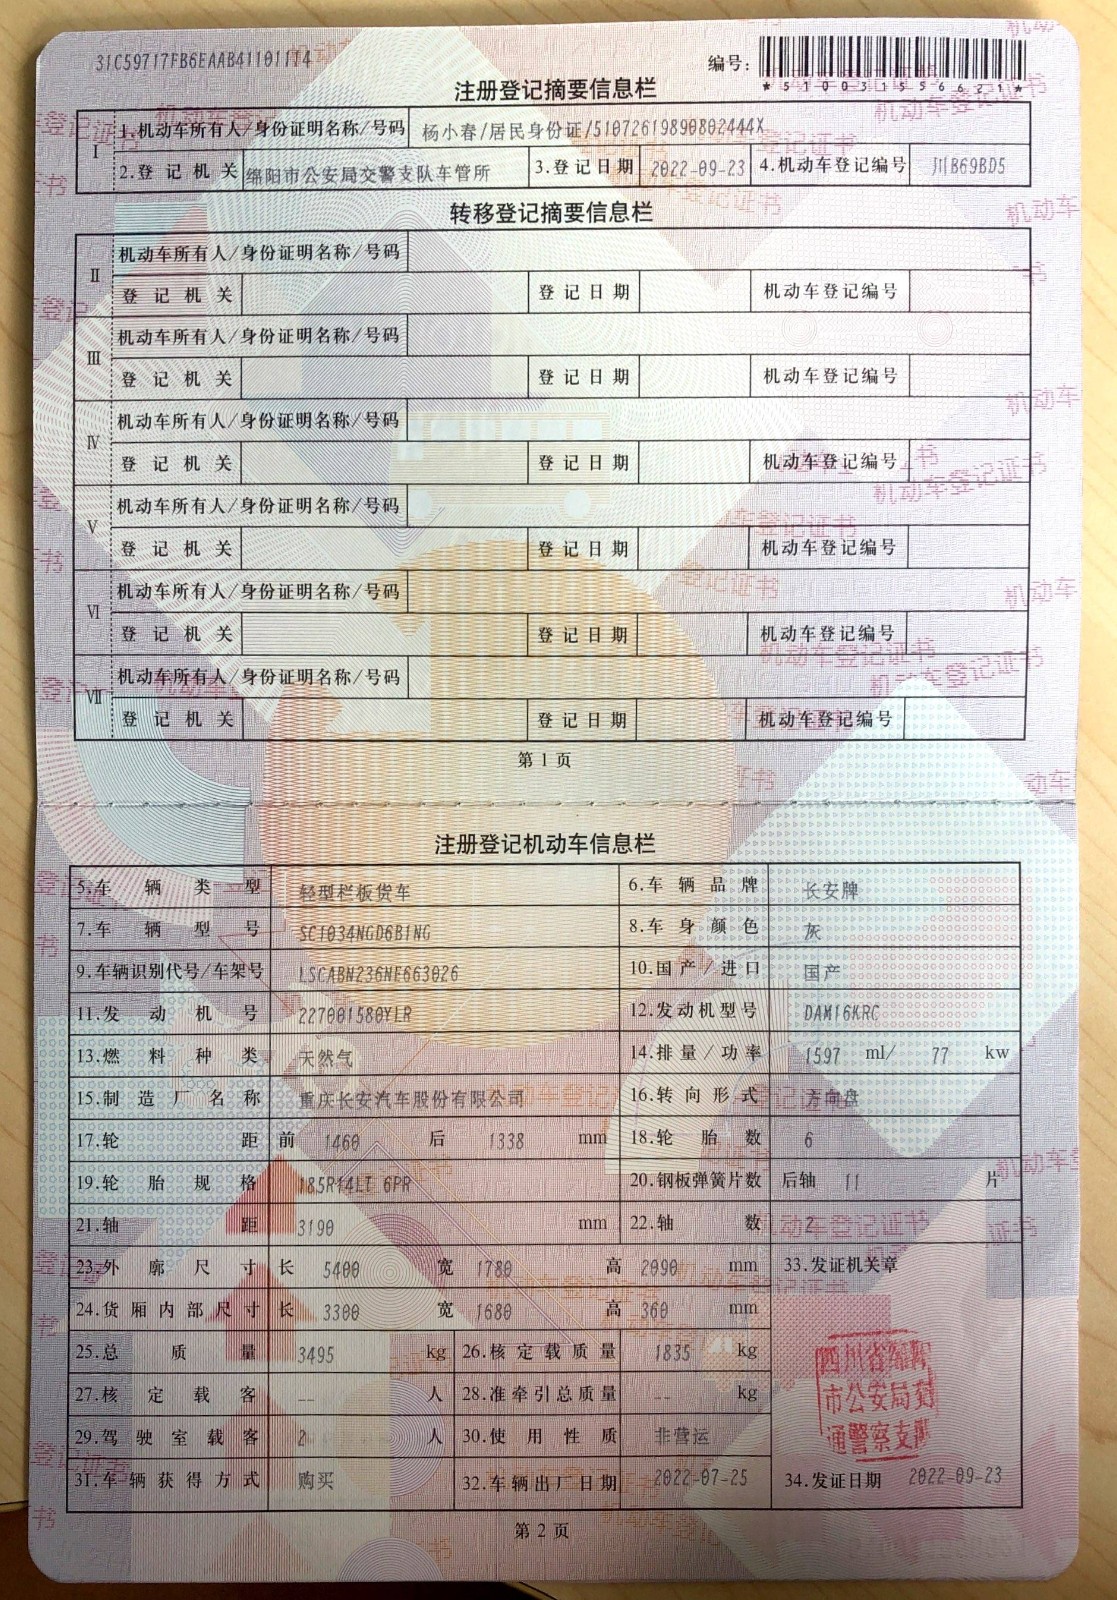 31C59717FB6EAAB41101114
编号：
*510031556621*
注册登记摘要信息栏
I 1.机动车所有人/身份证明名称/号码 杨小春/居民身份证/51072619890802444X
2.登记机关 绵阳市公安局交警支队车管所 3.登记日期 2022-09-23 4.机动车登记编号 川B69BD5
转移登记摘要信息栏
II 机动车所有人/身份证明名称/号码
登记机关 登记日期 机动车登记编号
III 机动车所有人/身份证明名称/号码
登记机关 登记日期 机动车登记编号
IV 机动车所有人/身份证明名称/号码
登记机关 登记日期 机动车登记编号
V 机动车所有人/身份证明名称/号码
登记机关 登记日期 机动车登记编号
VI 机动车所有人/身份证明名称/号码
登记机关 登记日期 机动车登记编号
VII 机动车所有人/身份证明名称/号码
登记机关 登记日期 机动车登记编号
第1页
注册登记机动车信息栏
5.车辆类型 轻型栏板货车 6.车辆品牌 长安牌
7.车辆型号 SC1034NGD6B1NG 8.车身颜色 灰
9.车辆识别代号/车架号 LSCABN236NE663026 10.国产/进口 国产
11.发动机号 227001580YLR 12.发动机型号 DAM16KRC
13.燃料种类 天然气 14.排量/功率 1597 ml/ 77 kw
15.制造厂名称 重庆长安汽车股份有限公司 16.转向形式 方向盘
17.轮距 前 1460 后 1338 mm 18.轮胎数 6
19.轮胎规格 185R14LT 6PR 20.钢板弹簧片数 后轴 11 片
21.轴距 3190 mm 22.轴数 2
23.外廓尺寸 长 5400 宽 1780 高 2090 mm 33.发证机关章
24.货厢内部尺寸 长 3300 宽 1680 高 360 mm
25.总质量 3495 kg 26.核定载质量 1835 kg
27.核定载客 -- 人 28.准牵引总质量 -- kg
29.驾驶室载客 2 人 30.使用性质 非营运
四川省绵阳
市公安局交
通警察支队
31.车辆获得方式 购买 32.车辆出厂日期 2022-07-25 34.发证日期 2022-09-23
第2页